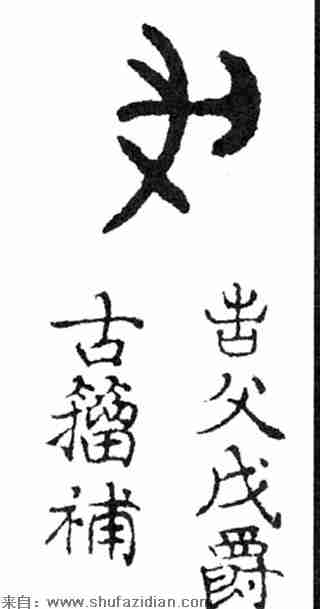 告父戊爵
古籀補
来自：www.shufazidian.com